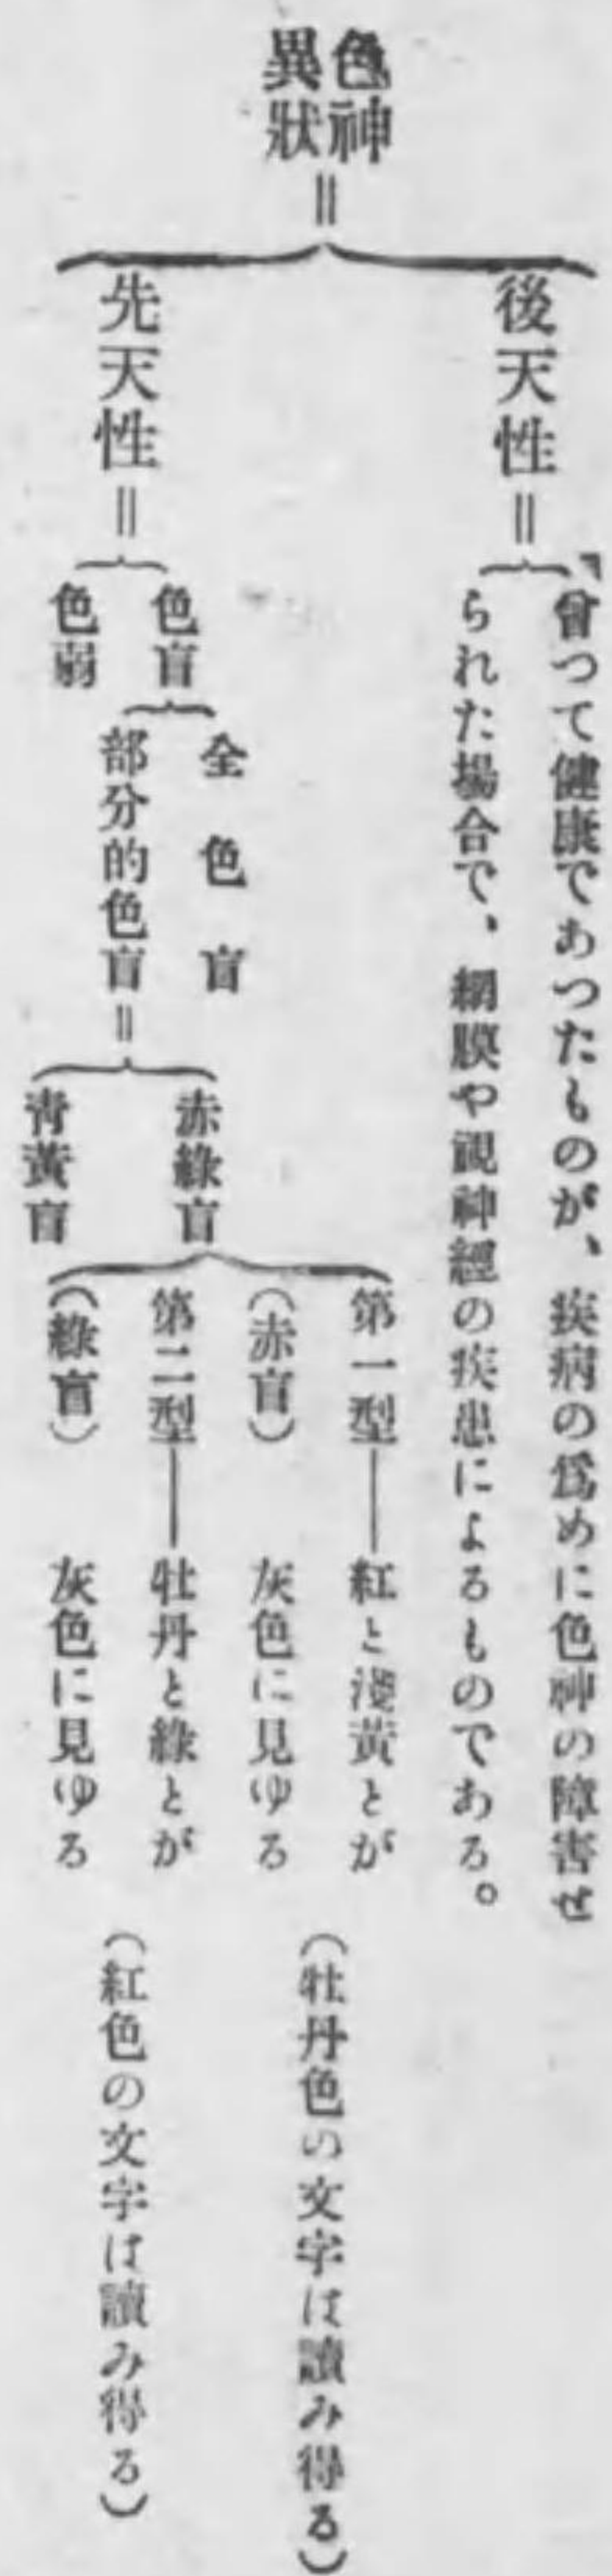 色神
異狀
＝
後天性＝
曾つて健康であつたものが、疾病の爲めに色神の障害せ
られた場合で、網膜や視神經の疾患によるものである。
先天性＝
色盲
全色盲
部分的色盲＝
赤綠盲
第一型――紅と淺黃とが
（赤盲）　灰色に見ゆる
（牡丹色の文字は讀み得る）
第二型――牡丹と綠とが
（綠盲）　灰色に見ゆる
（紅色の文字は讀み得る）
靑黃盲
色弱